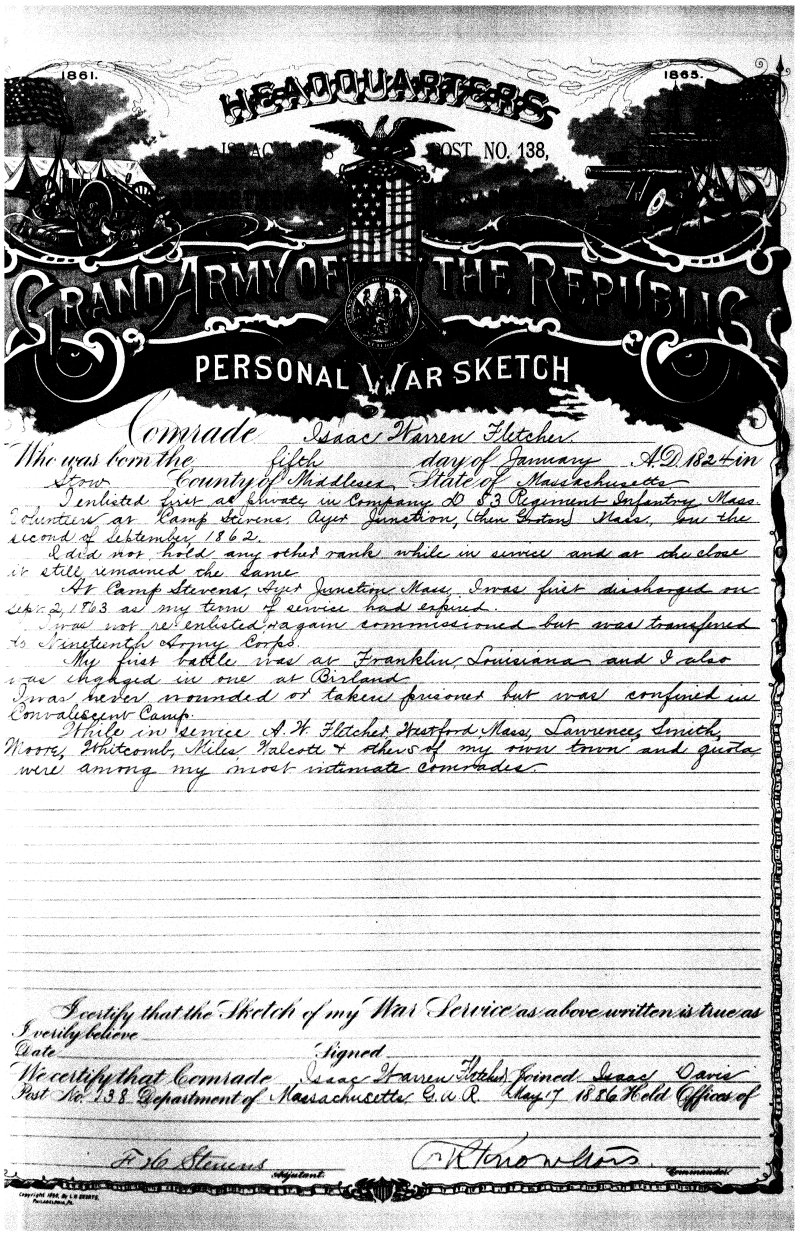 1861.
1865.
HEADQUARTERS
ISAAC POST NO. 138,
GRAND ARMY OF THE REPUBLIC
PERSONAL WAR SKETCH
Comrade Isaac Warren Fletcher
Who was born the fifth day of January A.D. 1824 in
Stow County of Middlesex State of Massachusetts
I enlisted first as private in Company D 53 Regiment Infantry Mass.
Volunteers at Camp Stevens, Ayer Junction, (then Groton) Mass., on the
second of September 1862.
I did not hold any other rank while in service and at the close
it still remained the same
At Camp Stevens, Ayer Junction Mass. I was first discharged on
Sept. 2, 1863 as my term of service had expired.
I was not re enlisted again commissioned but was transferred
to Nineteenth Army Corps.
My first battle was at Franklin, Louisiana and I also
was engaged in one at Birland
I was never wounded or taken prisoner but was confined in
Convalescent Camp.
While in service A. W. Fletcher, Westford, Mass, Lawrence, Smith,
Moore, Whitcomb, Miles, Walcott & others of my own town and quota
were among my most intimate comrades.
I certify that the Sketch of my War Service as above written is true as
I verily believe
Date Signed
We certify that Comrade Isaac Warren Fletcher Joined Isaac Davis
Post No. 138 Department of Massachusetts G.A.R. May 17 1886 Held Offices of
F H Stevens
Adjutant.
Knowlton
Commander.
Copyright 1890, By L.H. EVERTS,
PHILADELPHIA, PA.